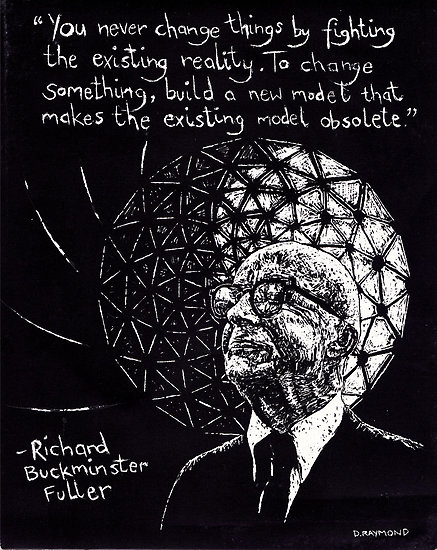 “You never change things by fighting
the existing reality. To change
something, build a new model that
makes the existing model obsolete.”
-Richard
Buckminster
Fuller
D.RAYMOND